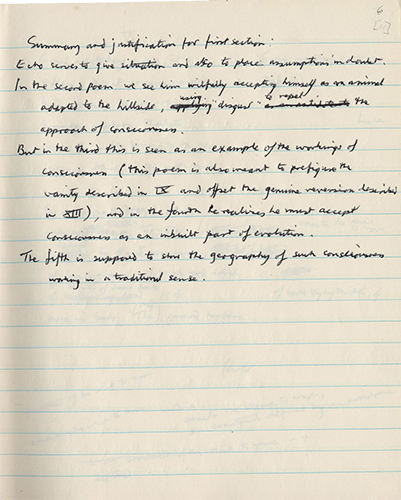 6
[7]
Summary and justification for first section:
Echo serves to give situation and also to place assumptions in doubt.
In the second poem we see him wilfully accepting himself as an animal
adapted to the hillside, using "disgust" to repel the
approach of consciousness.
But in the third this is seen as an example of the workings of
consciousness (this poem is also meant to prefigure the
vanity described in IX and offset the genuine reversion described
in XIII), and in the fourth he realizes he must accept
consciousness as an inbuilt part of evolution.
The fifth is supposed to show the geography of such consciousness
working in a traditional sense.